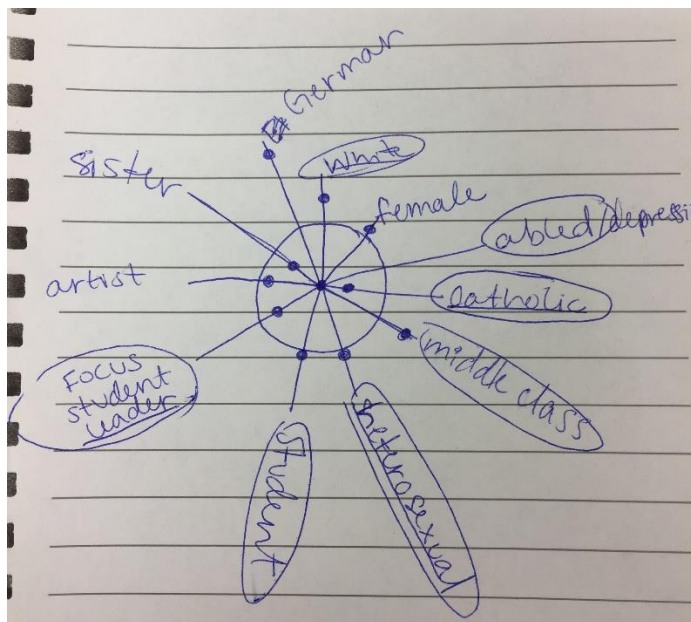 German
White
sister
female
abled/depressi
artist
Catholic
middle class
FOCUS
student
leader
student
heterosexual